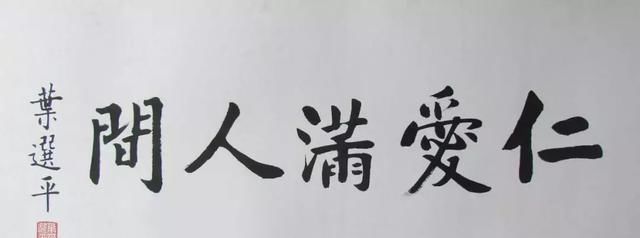 仁愛滿人間
葉選平